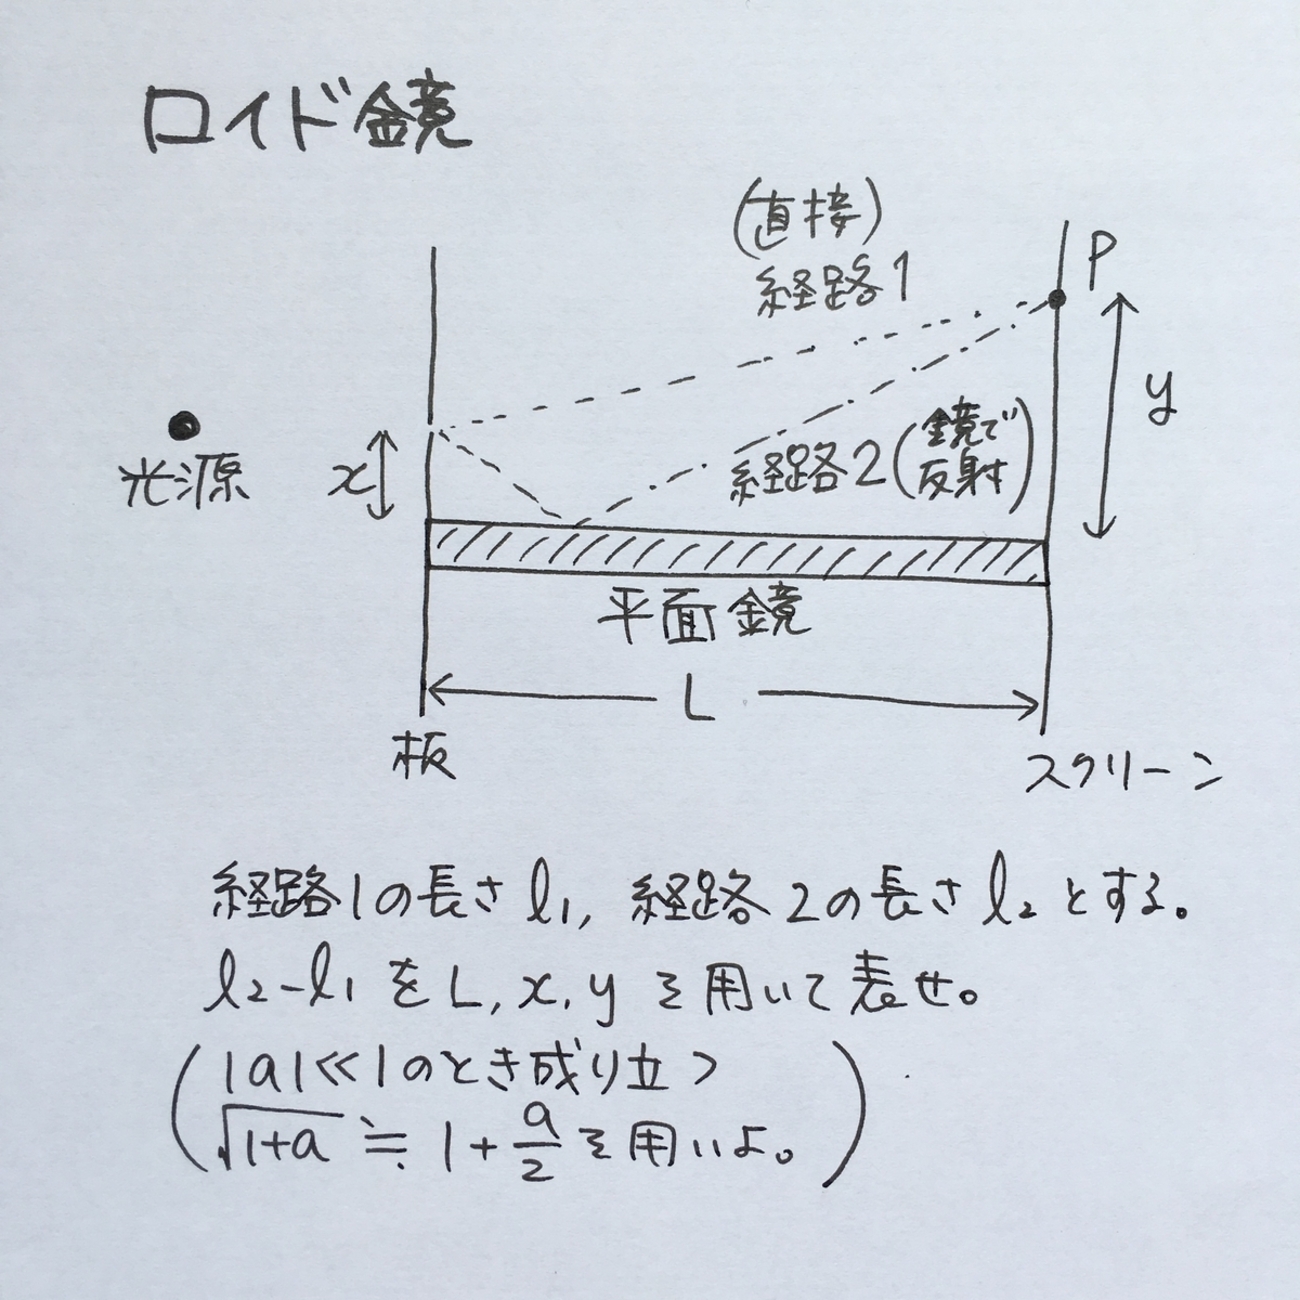 ロイド鏡
(直接)
経路1
P
y
光源
x
経路2(鏡で反射)
平面鏡
L
板
スクリーン
経路1の長さl₁, 経路2の長さl₂とする。
l₂-l₁をL, x, yを用いて表せ。
(|a|≪1のとき成り立つ
√1+a ≒ 1+a/2を用いよ。)